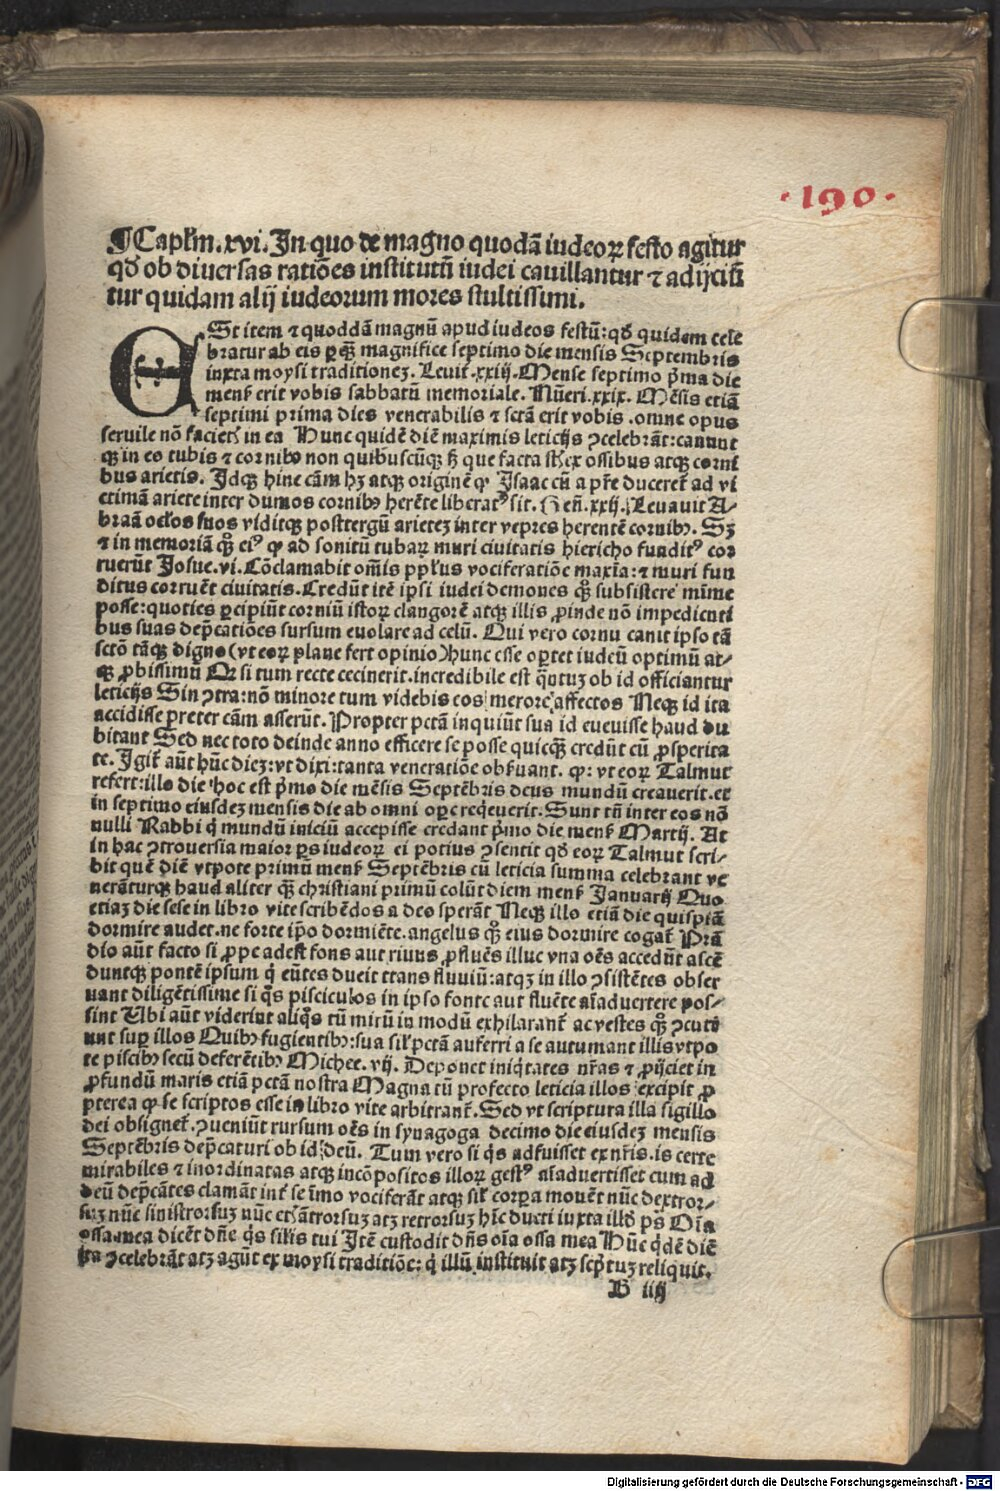 ·190·
¶Caplm̄.xvi.In quo de magno quodā iudeoꝝ festo agitur
qd̄ ob diuersas ratiōes institutū iudei cauillantur ⁊ adijciū
tur quidam alij iudeorum mores stultissimi.
ESt item ⁊ quoddā magnū apud iudeos festū:qd̄ quidem cele
bratur ab eis ꝑꝙ̄ magnifice septimo die mensis Septembris
iuxta moysi traditionez. Leuit̄.xxiij.Mense septimo p̄ma die
mens̄ erit vobis sabbatū memoriale. Nūeri.xxix. Mēsis etiā
septimi prima dies venerabilis ⁊ sctā erit vobis .omne opus
seruile nō faciet̄ in ea Hunc quidē diē maximis leticijs ꝯcelebrāt:canunt
qꝫ in eo tubis ⁊ cornibꝰ non quibuscūqꝫ sꝫ que facta st̄ ex ossibus atqꝫ corni
bus arietis. Idqꝫ hinc cām hꝫ atqꝫ originē ꝙ Isaac cū a pr̄e duceret̄ ad vi
ctimā ariete inter dumos cornibꝰ herēte liberatꝰ sit. Gen̄.xxij. Leuauit A⸗
braā oc̄los suos viditqꝫ posttergū arietez inter vepres herentē cornibꝰ. Sꝫ
⁊ in memoriā qꝫ eiꝰ ꝙ ad sonitū tubaꝝ muri ciuitatis hiericho funditꝰ cor
ruerūt Iosue.vi. Cōclamabit om̄is pp̄lus vociferatiōe maxīa:⁊ muri fun
ditus corruēt ciuitatis.Credūt itē ipsi iudei demones qꝫ subsistere mīme
posse:quoties ꝑcipiūt corniū istoꝝ clangorē atqꝫ illis ꝓinde nō impedienti
bus suas dep̄catiōes sursum euolare ad celū. Qui vero cornu canit ipso tā
sctō tāqꝫ digno(vt eoꝝ plane fert opinio)hunc esse oꝑtet iudeū optimū at⸗
qꝫ ꝓbissimū Qꝫ si tum recte cecinerit.incredibile est q̄ntuꝫ ob id officiantur
leticijs Sin ꝯtra:nō minore tum videbis eos merore affectos Neqꝫ id ita
accidisse preter cām asserūt. Propter pctā inquiūt sua id euenisse haud du
bitant Sed nec toto deinde anno efficere se posse quicqꝙ̄ credūt cū ꝓsperita
te. Igit̄ aūt hūc dieꝫ:vt dixi:tanta veneratiōe obẜuant. qꝛ: vt eoꝝ Talmut
refert:illo die hoc est p̄mo die mēsis Septēbris deus mundū creauerit.et
in septimo eiusdeꝫ mensis die ab omni oꝑe reqͥeuerit. Sunt tn̄ inter eos nō
nulli Rabbi qͥ mundū iniciū accepisse credant p̄mo die mens̄ Martij. At
in hac ꝯtrouersia maior ꝑs iudeoꝝ ei potius ꝯsentit qd̄ eoꝝ Talmut scri⸗
bit quē diē vtpote primū mens̄ Septēbris cū leticia summa celebrant ve
nerāturqꝫ haud aliter ꝙ̄ christiani primū colūt diem mens̄ Ianuarij Quo
etiaꝫ die sese in libro vite scribēdos a deo sperāt Neqꝫ illo etiā die quispiā
dormire audet.ne forte ip̄o dormiēte.angelus qꝫ eius dormire cogat̄ Prā
dio aūt facto si ꝓpe adest fons aut riuus ꝓfluēs illuc vna oēs accedūt ascē
duntqꝫ pontē ipsum qͥ eūtes ducit trans fluuiū:atqꝫ in illo ꝯsistētes obser
uant diligētissime si qͥs pisciculos in ipso fonte aut fluēte aīaduertere pos⸗
sint Ubi aūt viderint aliqͦs tū mirū in modū exhilarant̄ ac vestes qꝫ ꝯcuti
unt suꝑ illos Quibꝰ fugientibꝰ:sua sil̄ pctā auferri a se autumant illis vtpo
te piscibꝰ secū deferētibꝰ Michee. vij. Deponet iniqͥtates nr̄as ⁊ ꝓijciet in
ꝓfundū maris etiā pctā nostra Magna tū profecto leticia illos excipit ꝓ
pterea ꝙ se scriptos esse in libro vite arbitrant̄. Sed vt scriptura illa sigillo
dei obsignet̄.ꝯueniūt rursum oēs in synagoga decimo die eiusdeꝫ mensis
Septēbris dep̄caturi ob id deū. Tum vero si qͥs adfuisset ex nr̄is.is certe
mirabiles ⁊ inordinatas atqꝫ incōpositos illoꝝ gestꝰ aīaduertisset cum ad
deū dep̄cātes clamāt int̄ se īmo vociferāt atqꝫ sil̄ corꝑa mouēt nūc dextror⸗
suꝫ nūc sinistrorsuꝫ nūc et antrorsuꝫ atꝫ retrorsuꝫ hīc ducti iuxta illd̄ ps̄ Oīa
ossa mea dicēt dn̄e qͥs sil̄is tui Itē custodit dn̄s oīa ossa mea Hūc qͥdē diē
ita ꝯcelebrāt atꝫ agūt ex moysi traditiōe: qͥ illū instituit atꝫ sc̄ptuꝫ reliquit.
B iiij
Digitalisierung gefördert durch die Deutsche Forschungsgemeinschaft - DFG